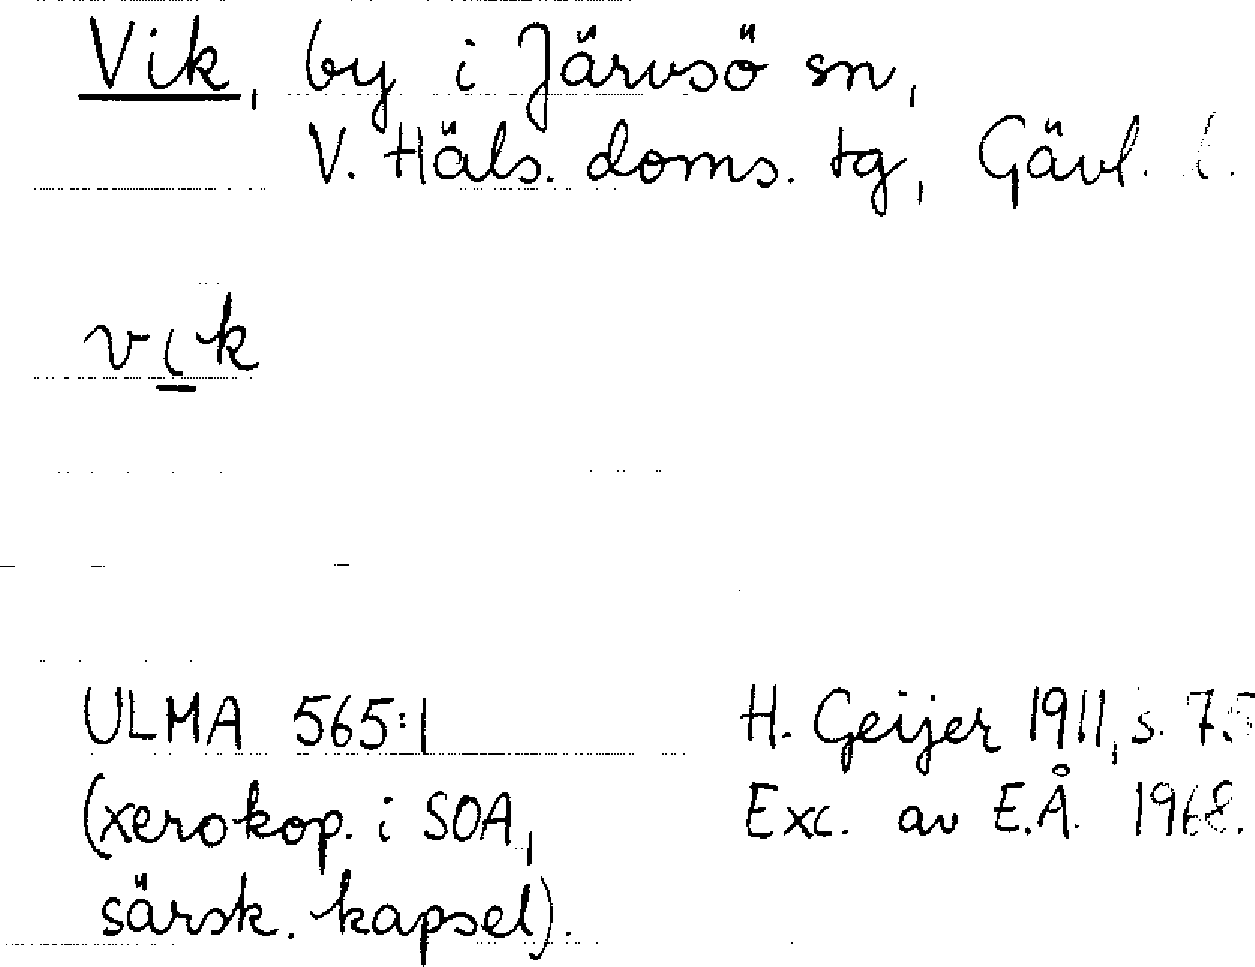 Vik, by i Järvsö sn,
V. Häls. doms. tg, Gävl. l.
vik
ULMA 565:1
(xerokop. i SOA,
särsk. kapsel).
H. Geijer 1911, s. 7.
Exc. av E.Å. 1968.